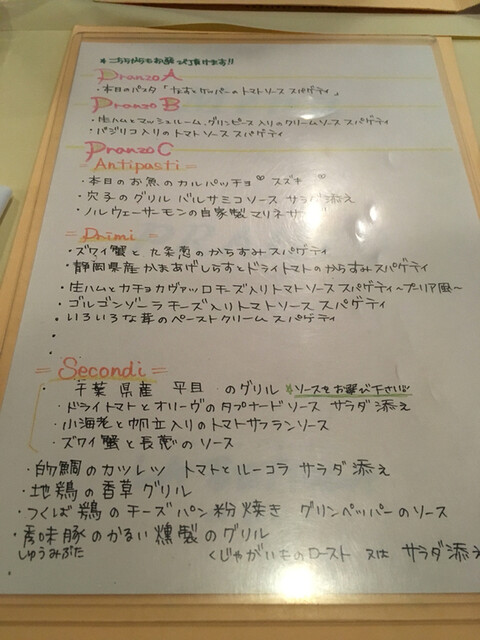 *こちらからもお選び頂けます!!
Pranzo A
・本日のパスタ「なすとケッパーのトマトソース スパゲティ」
Pranzo B
・生ハムとマッシュルーム、グリンピース入りのクリームソース スパゲティ
・バジリコ入りのトマトソース スパゲティ
Pranzo C
= Antipasti =
・本日のお魚のカルパッチョ ♡ スズキ ♡
・穴子のグリル バルサミコソース サラダ添え
・ノルウェーサーモンの自家製マリネサラダ
= Primi =
・ズワイ蟹と九条葱のからすみスパゲティ
・静岡県産かまあげしらすとドライトマトのからすみスパゲティ
・生ハムとカチョカヴァッロチーズ入りトマトソース スパゲティ〜プーリア風〜
・ゴルゴンゾーラチーズ入りトマトソース スパゲティ
・いろいろな茸のペーストクリーム スパゲティ
= Secondi =
・千葉県産 平目 のグリル *ソースをお選び下さい!!
・ドライトマトとオリーヴのタプナードソース サラダ添え
・小海老と帆立入りのトマトサフランソース
・ズワイ蟹と長葱のソース
・的鯛のカツレツ トマトとルーコラ サラダ添え
・地鶏の香草グリル
・つくば鶏のチーズパン粉焼き グリンペッパーのソース
・秀味豚のかるい燻製のグリル
しゅうみぶた くじゃがいものロースト 又は サラダ添え